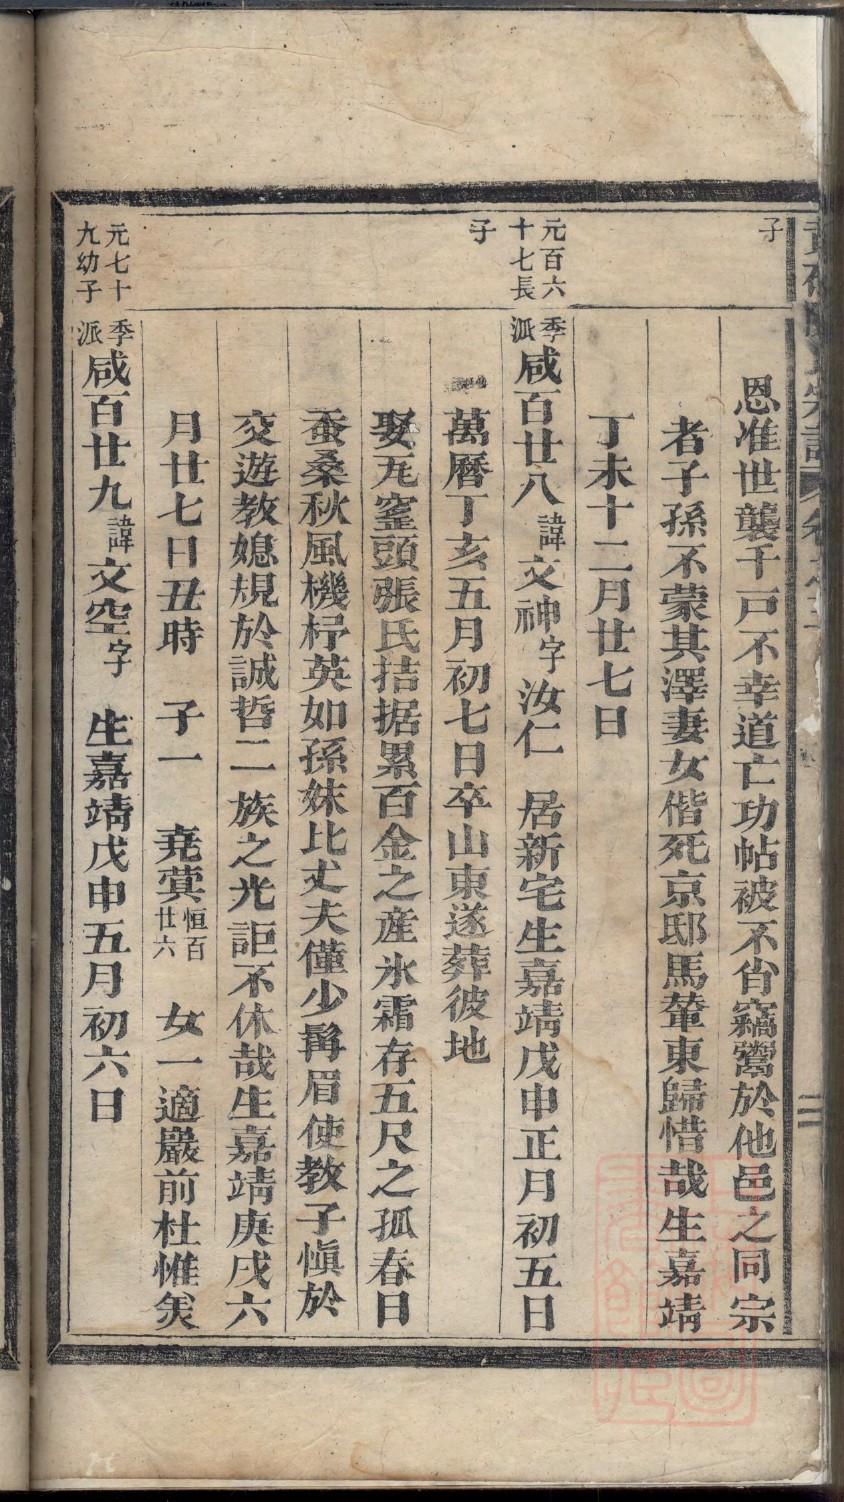 子
恩准世襲千戸不幸道亡功帖被不肖竊鬻於他邑之同宗
者子孫不蒙其澤妻女偕死京邸馬輦東歸惜哉生嘉靖
丁未十二月廿七日
元百六十七長子
季派咸百廿八諱文神字汝仁 居新宅生嘉靖戊申正月初五日
萬曆丁亥五月初七日卒山東遂葬彼地
娶瓦窰頭張氏拮据累百金之產氷霜存五尺之孤春日
蚕桑秋風機杼英如孫妹比丈夫僅少鬚眉使教子慎於
交遊教媳規於誠哲二族之光詎不休哉生嘉靖庚戌六
月廿七日丑時 子一 堯蓂恒百廿六 女一適巖前杜惟
元七十九幼子
季派咸百廿九諱文空字 生嘉靖戊申五月初六日